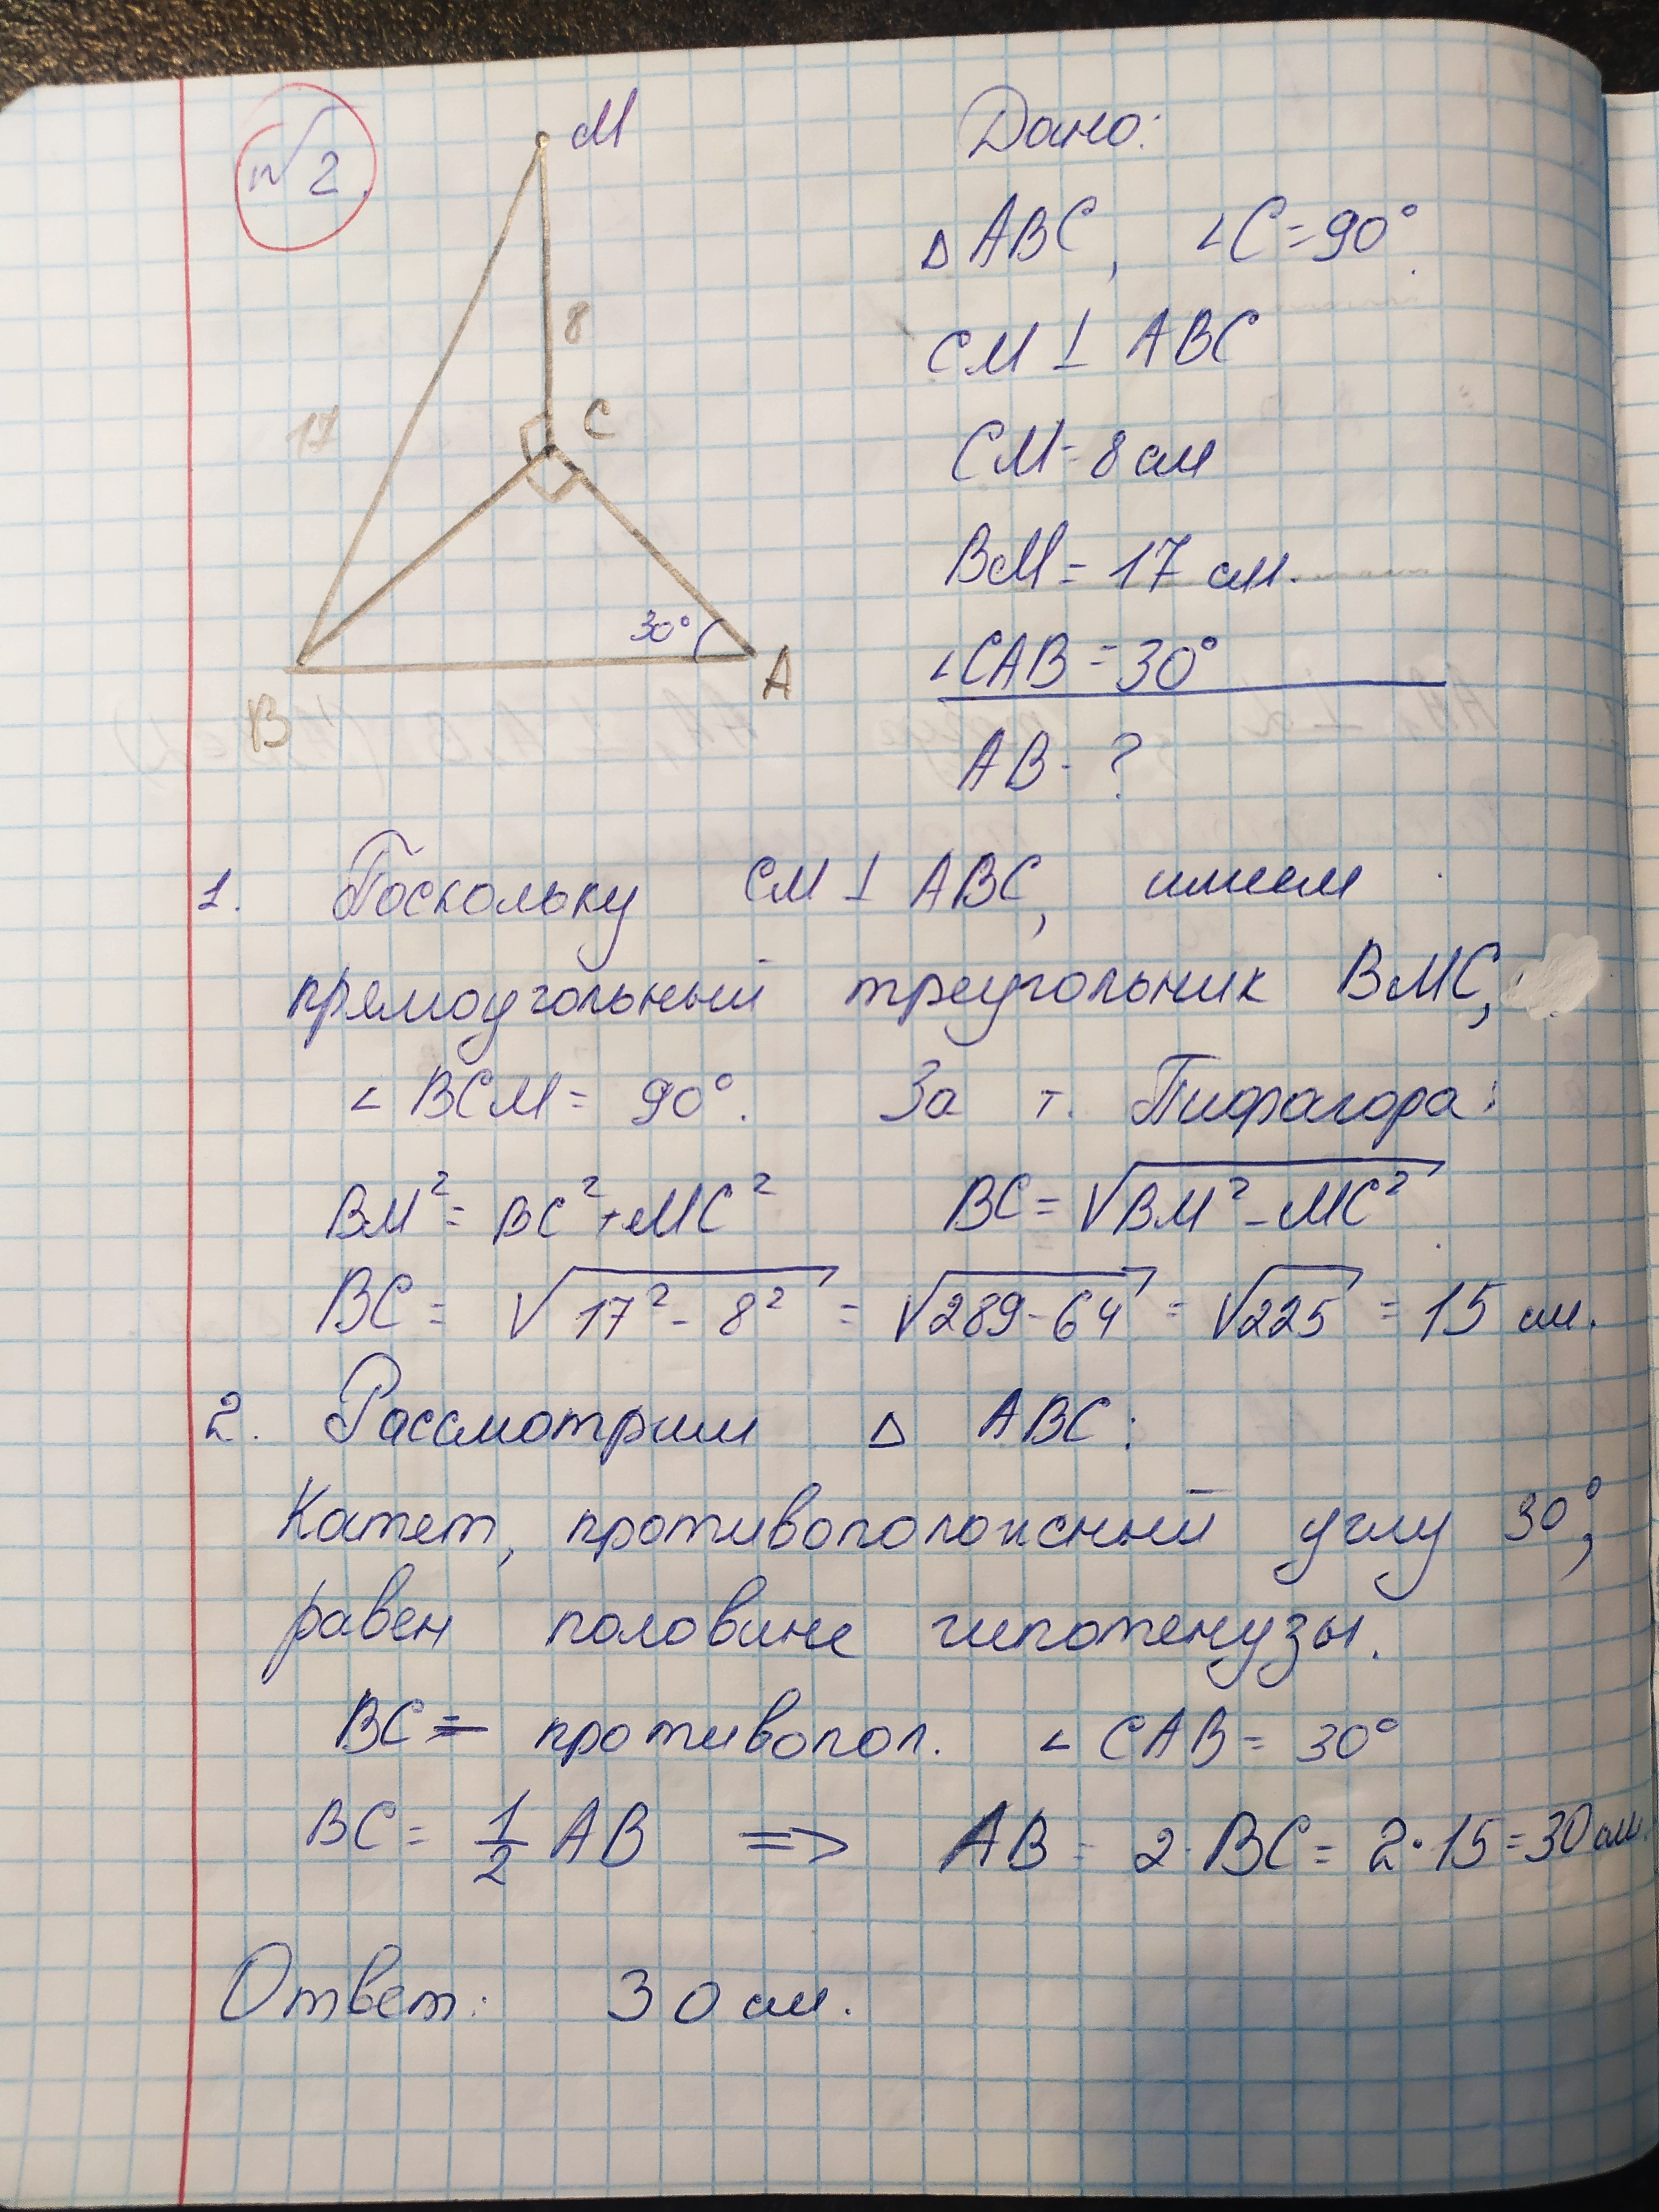 №2.
M
8
17
C
30°
B
A
Дано:
△ABC, ∠C=90°.
CM ⊥ ABC
CM=8 см
BM= 17 см.
∠CAB =30°
AB - ?
1. Поскольку CM ⊥ ABC, имеем
прямоугольный треугольник BMC,
∠ BCM= 90°. За т. Пифагора:
BM²= BC²+MC² BC= √BM²-MC²
BC= √17²- 8² = √289-64 = √225 = 15 см.
2. Рассмотрим △ ABC:
Катет, противоположный углу 30°,
равен половине гипотенузы.
BC — противопол. ∠ CAB= 30°
BC= 1/2 AB => AB= 2·BC= 2·15=30 см.
Ответ: 30 см.